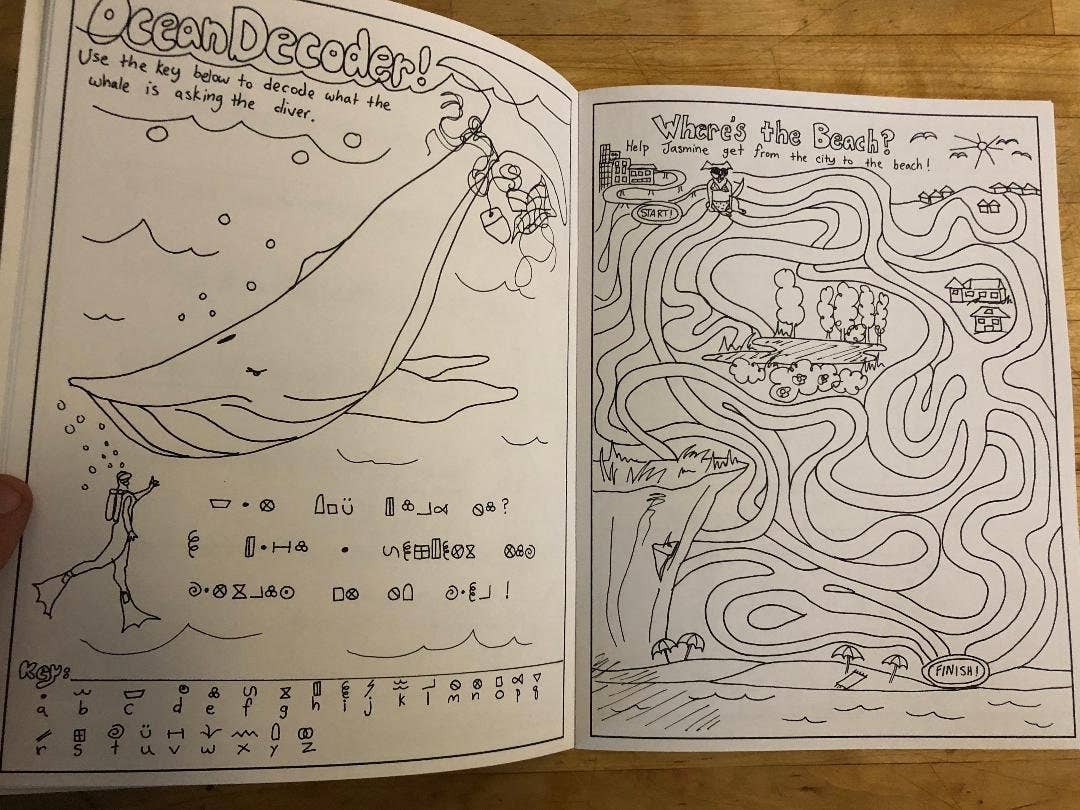 Ocean Decoder!
Use the key below to decode what the
whale is asking the diver.
Key:
a b c d e f g h i j k l m n o p q
r s t u v w x y z
Where's the Beach?
Help Jasmine get from the city to the beach!
START!
FINISH!